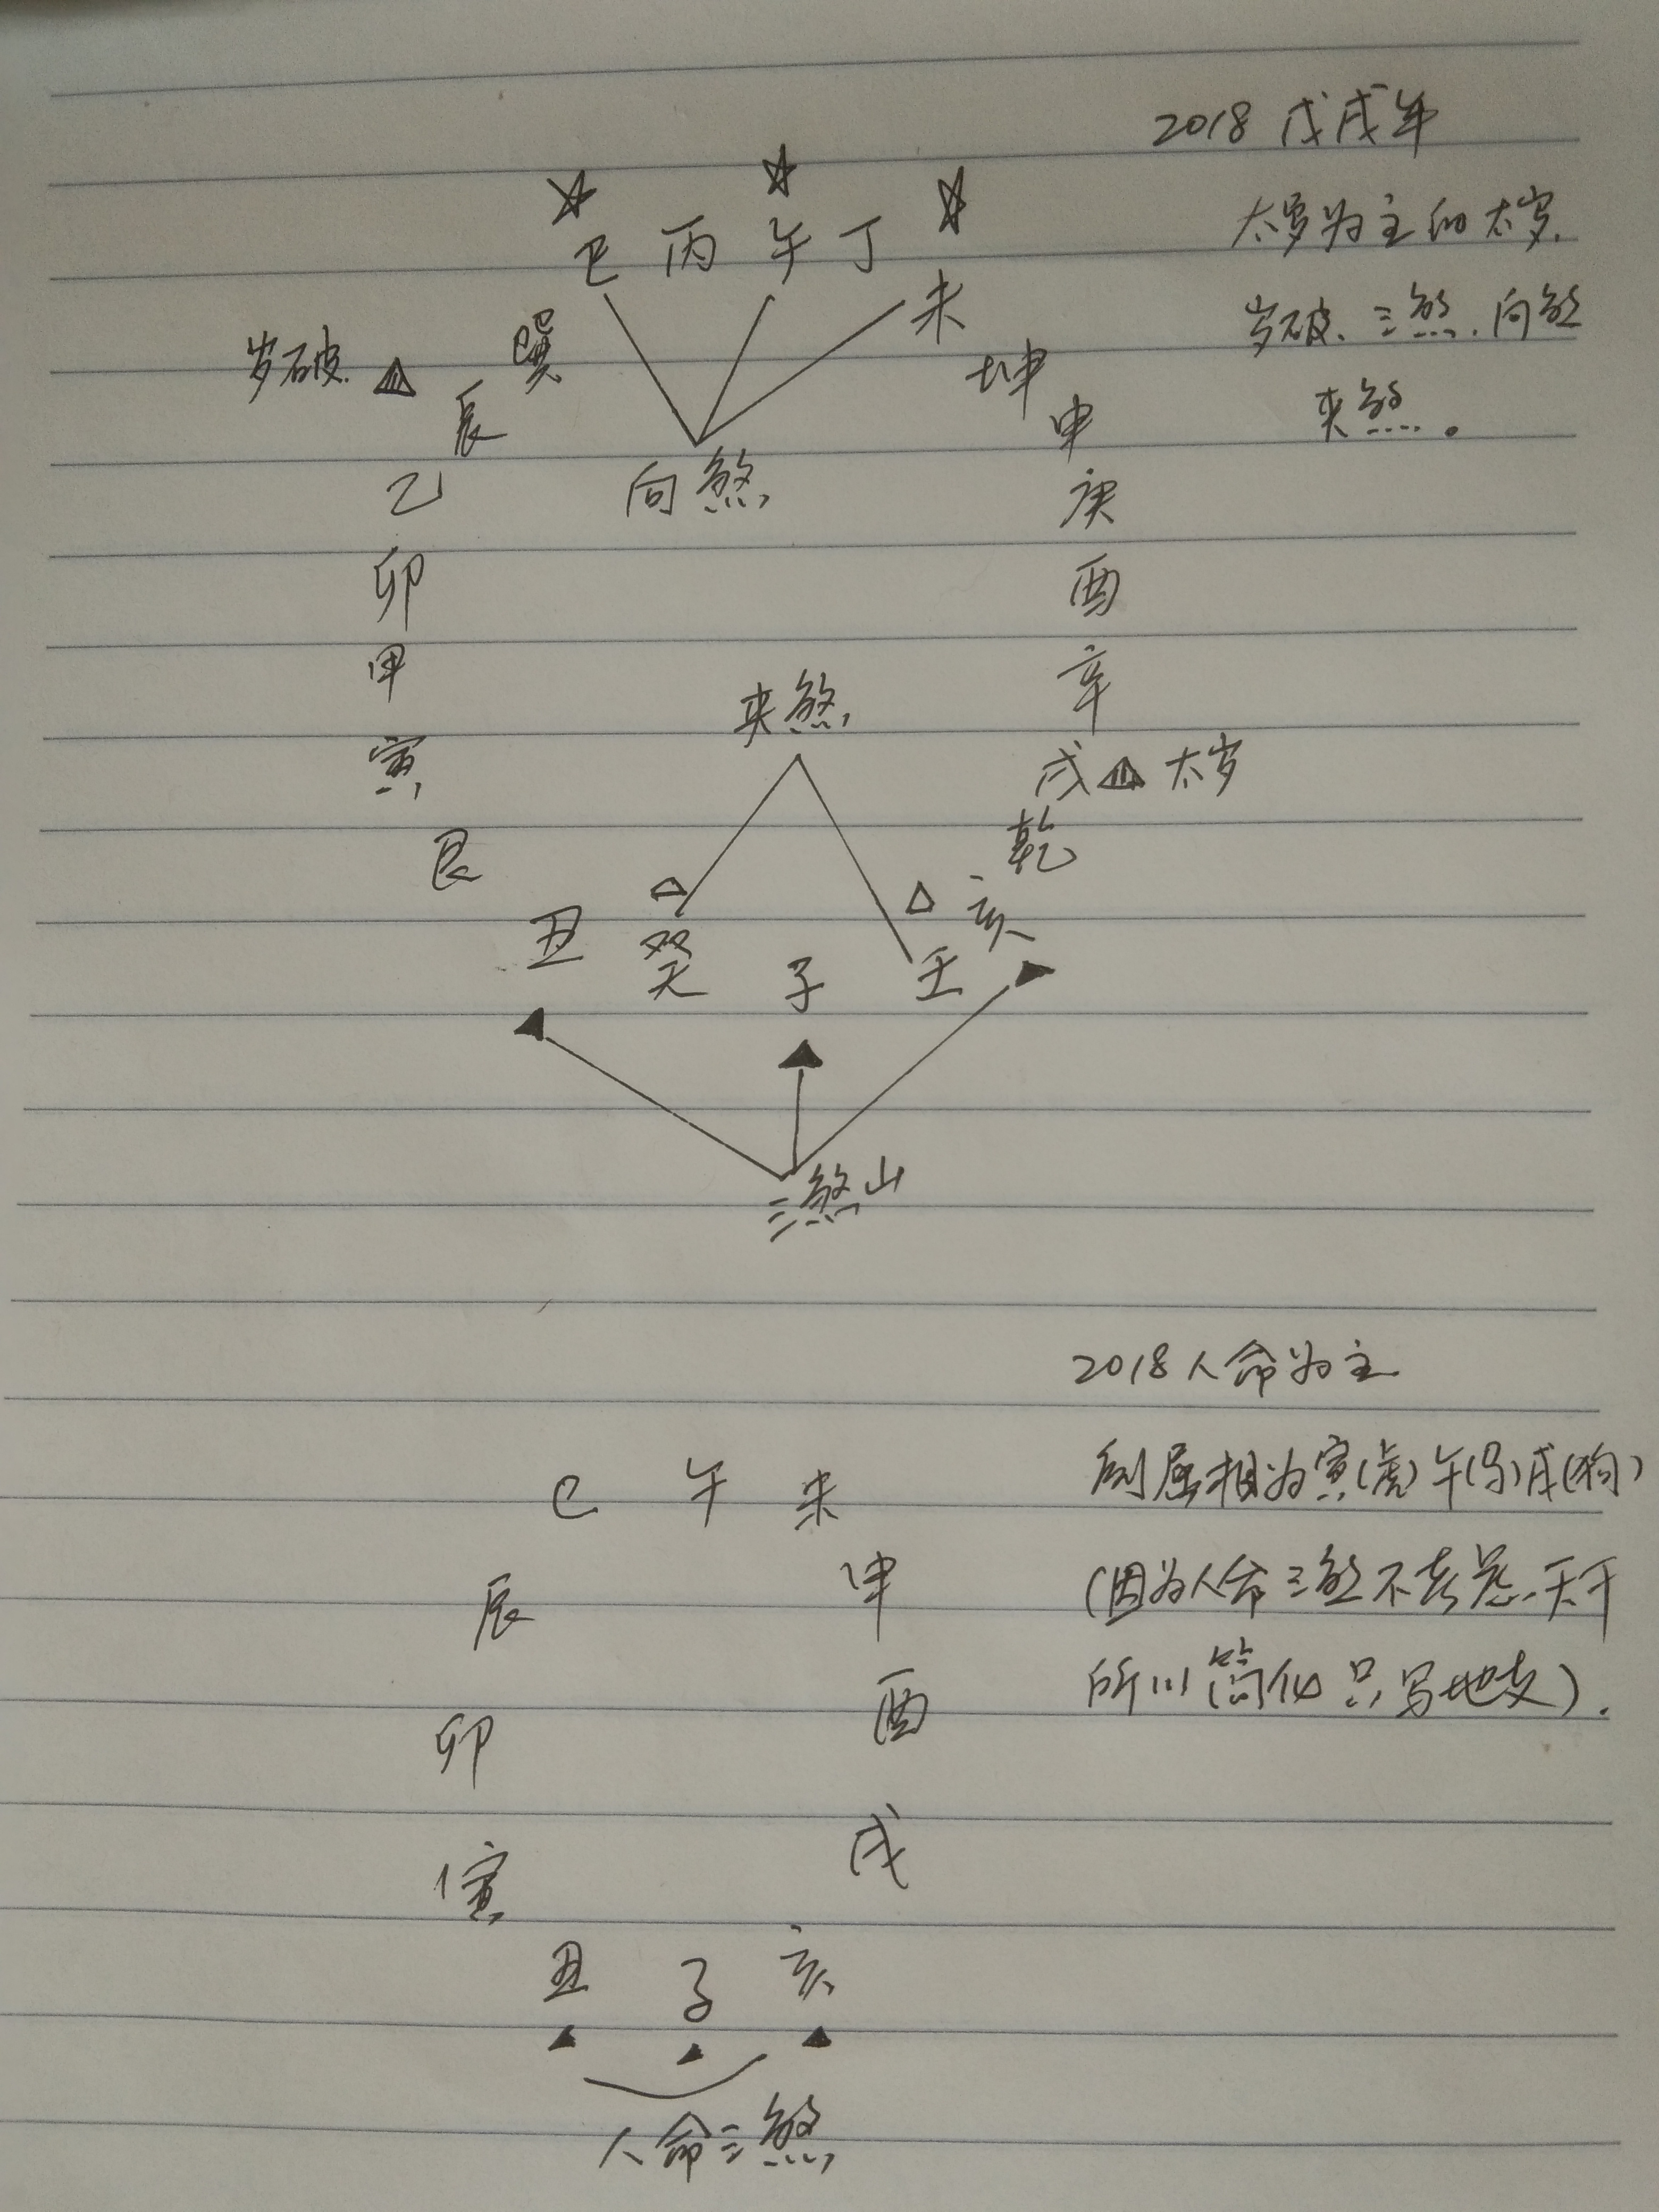 2018 戊戌年
太岁为主的太岁、
岁破、三煞、向煞
夹煞。
巳 丙 午 丁
未
巽
坤
岁破
辰
申
乙
向煞
庚
卯
酉
甲
夹煞
辛
寅
戌 太岁
乾
艮
亥
丑 癸 子 壬
三煞山
2018人命为主
则属相为寅(虎)午(马)戌(狗)
(因为人命三煞不考虑天干
所以简化只写地支).
巳 午 未
辰 申
卯 酉
寅 戌
丑 子 亥
人命三煞